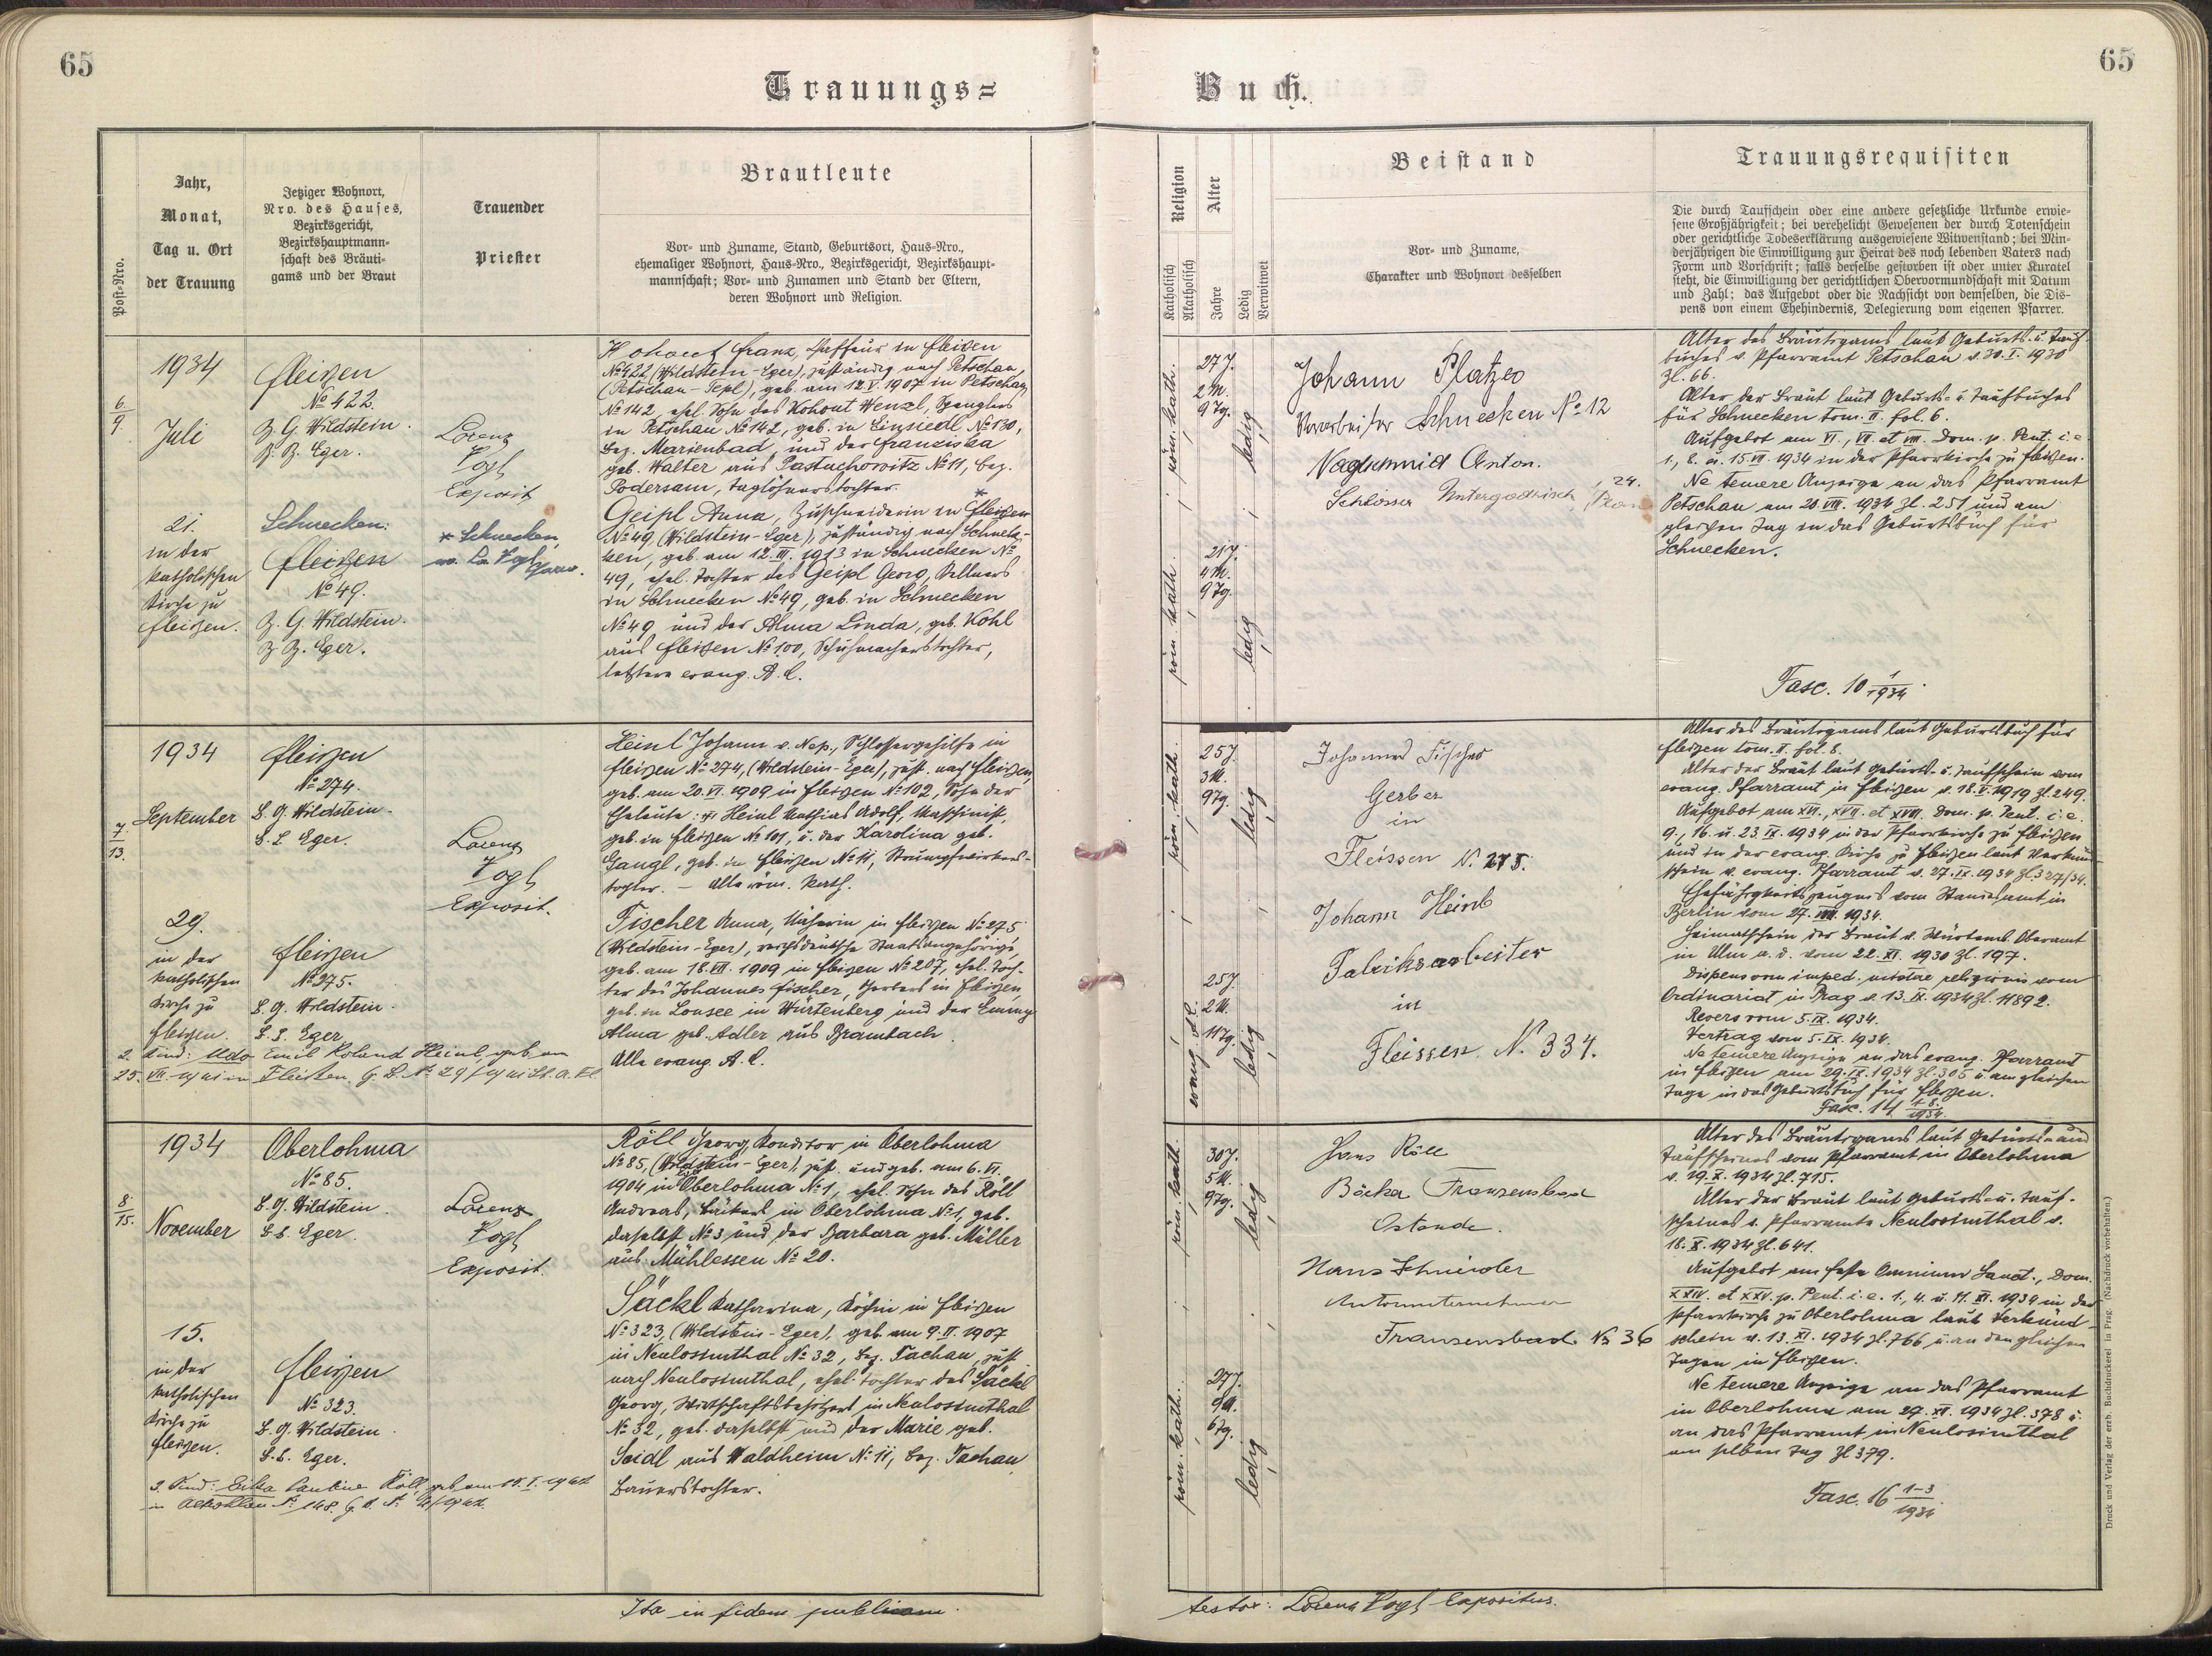 65
65
Trauungs=
Buch.
Post-Nro.
Jahr,
Monat,
Tag u. Ort
der Trauung
Jetziger Wohnort,
Nro. des Hauses,
Bezirksgericht,
Bezirkshauptmann=
schaft des Bräuti=
gams und der Braut
Trauender
Priester
Brautleute
Vor= und Zuname, Stand, Geburtsort, Haus=Nro.,
ehemaliger Wohnort, Haus=Nro., Bezirksgericht, Bezirkshaupt=
mannschaft; Vor= und Zunamen und Stand der Eltern,
deren Wohnort und Religion.
Religion
Katholisch
Akatholisch
Alter
Jahre
Ledig
Verwitwet
Beistand
Vor= und Zuname,
Charakter und Wohnort desselben
Trauungsrequisiten
Die durch Taufschein oder eine andere gesetzliche Urkunde erwie=
sene Großjährigkeit; bei verehelicht Gewesenen der durch Totenschein
oder gerichtliche Todeserklärung ausgewiesene Witwenstand; bei Min=
derjährigen die Einwilligung zur Heirat des noch lebenden Vaters nach
Form und Vorschrift; falls derselbe gestorben ist oder unter Kuratel
steht, die Einwilligung der gerichtlichen Obervormundschaft mit Datum
und Zahl; das Aufgebot oder die Nachsicht von demselben, die Dis=
pens von einem Ehehindernis, Delegierung vom eigenen Pfarrer.
6/9
1934
Juli
21.
in der
katholischen
Kirche zu
Fleißen.
Fleißen
№ 422.
B. G. Wildstein.
B. B. Eger.
Schnecken.
Fleißen
№ 49.
B. G. Wildstein.
B. B. Eger.
Lorenz
Vogl
Exposit
* Schnecken,
Kohout Franz, Chaffeur in Fleißen
№ 422 (Wildstein-Eger), zuständig nach Petschau,
(Petschau-Tepl), geb. am 12.V.1907 in Petschau
№ 142, ehel. Sohn des Kohout Wenzl, Spenglers
in Petschau № 142, geb. in Einsiedl № 130,
Bez. Marienbad, und der Franziska
geb. Walter aus Pastuchowitz № 11, Bez.
Podersam, Taglöhnerstochter.
Geipl Anna, Zuschneiderin in Fleißen *
№ 49 (Wildstein-Eger), zuständig nach Schnek-
ken, geb. am 12.III.1913 in Schnecken №
49, ehel. Tochter des Geipl Georg, Kellners
in Schnecken № 49, geb. in Schnecken
№ 49 und der Alma Linda, geb. Kohl
aus Fleißen № 100, Schuhmacherstochter,
letztere evang. A. C.
röm. kath.
27 J.
2 M.
9 Tg.
ledig
röm. kath.
21 J.
4 M.
9 Tg.
ledig
Johann Platzer
Vorarbeiter Schnecken № 12
Naglschmid Anton.
Schlosser Untergodrisch, 24.
Alter des Bräutigams laut Geburts- u. Tauf-
buches v. Pfarramt Petschau v. 30.I.1930
Zl. 66.
Alter der Braut laut Geburts- u. Taufbuches
für Schnecken tom. II. fol. 6.
Aufgebot am VI., VII. et VIII. Dom. p. Pent. i. e.
1., 8. u. 15.VII.1934 in der Pfarrkirche zu Fleißen.
Ne temere Anzeige an das Pfarramt
Petschau am 20.VIII.1934 Zl. 251 und am
gleichen Tag in das Geburtsbuch für
Schnecken.
Fasc. 10 1/1934.
7/13.
1934
September
29.
in der
katholischen
Kirche zu
Fleißen.
Fleißen
№ 274.
B. G. Wildstein.
B. B. Eger.
Fleißen
№ 275.
B. G. Wildstein.
B. B. Eger.
Lorenz
Vogl
Exposit.
Heinl Johann v. Nep., Schlossergehilfe in
Fleißen № 274, (Wildstein-Eger), zust. nach Fleißen,
geb. am 20.VI.1909 in Fleißen № 102, Sohn der
Eheleute: Heinl Mathias Adolf, Maschinist,
geb. in Fleißen № 101, u. der Karolina geb.
Gangl, geb. in Fleißen № 11, Strumpfwirkers-
tochter. – Alle röm. kath.
Fischer Anna, Näherin in Fleißen № 275
(Wildstein-Eger), reichsdeutsche Staatsangehörige,
geb. am 18.VII.1909 in Fleißen № 207, ehel. Toch-
ter des Johannes Fischer, Gerbers in Fleißen,
geb. in Lonsee in Würtenberg und der Emmy
Alma geb. Adler aus Brambach.
Alle evang. A. C.
2. Kind: Udo Emil Roland Heinl, geb. am
25. VII. 1941 in Fleißen, G. B. № 29/1941
röm. kath.
25 J.
3 M.
9 Tg.
ledig
evang. A. C.
25 J.
2 M.
11 Tg.
ledig
Johannes Fischer
Gerber
in
Fleissen N. 275.
Johann Heinl
Fabriksarbeiter
in
Fleissen. N. 334.
Alter des Bräutigams laut Geburtsbuch für
Fleißen tom. II. fol. 8.
Alter der Braut laut Geburts- u. Taufschein vom
evang. Pfarramt in Fleißen v. 18.V.1919 Zl. 249.
Aufgebot am XVI., XVII. et XVIII. Dom. p. Pent. i. e.
9., 16. u. 23.IX.1934 in der Pfarrkirche zu Fleißen
und in der evang. Kirche zu Fleißen laut Verkünd-
schein v. evang. Pfarramt v. 27.IX.1934 Zl. 327/34.
Ehefähigkeitszeugnis vom Standesamt in
Berlin vom 27.VIII.1934.
Heimatschein der Braut v. Würtemb. Oberamt
in Ulm a. d. vom 22.XI.1930 Zl. 197.
Dispens vom imped. mixtae religionis vom
Ordinariat in Prag v. 13.IX.1934 Zl. 11892.
Revers vom 5.IX.1934.
Vertrag vom 5.IX.1934.
Ne temere Anzeige an das evang. Pfarramt
in Fleißen am 29.IX.1934 Zl. 305 u. am gleichen
Tage in das Geburtsbuch für Fleißen.
Fasc. 14 1-8./1934.
8/15.
1934
November
15.
in der
katholischen
Kirche zu
Fleißen.
Oberlohma
№ 85.
B. G. Wildstein.
B. B. Eger.
Fleißen
№ 323.
B. G. Wildstein.
B. B. Eger.
Lorenz
Vogl
Exposit.
Röll Georg, Konditor in Oberlohma
№ 85, (Wildstein-Eger), zust. und geb. am 6.VI.
1904 in Oberlohma № 1, ehel. Sohn des Röll
Andreas, Bäckers in Oberlohma № 1, geb.
daselbst № 3 und der Barbara geb. Müller
aus Mühlessen № 20.
Säckl Katharina, Köchin in Fleißen
№ 323, (Wildstein-Eger), geb. am 9.II.1907
in Neulosimthal № 32, Bez. Tachau, zust.
nach Neulosimthal, ehel. Tochter des Säckl
Georg, Wirtschaftsbesitzers in Neulosimthal
№ 32, geb. daselbst und der Marie geb.
Seidl aus Waldheim № 11, Bez. Tachau,
Bauerstochter.
röm. kath.
30 J.
5 M.
9 Tg.
ledig
röm. kath.
27 J.
9 M.
6 Tg.
ledig
Hans Röll
Bäcker Franzensbad
Ostende.
Hans Schneider
Autounternehmer
Franzensbad № 36
Alter des Bräutigams laut Geburts- und
Taufscheines vom Pfarramt in Oberlohma
v. 19.X.1934 Zl. 715.
Alter der Braut laut Geburts- u. Tauf-
scheines v. Pfarramte Neulosimthal v.
18.X.1934 Zl. 641.
Aufgebot am Feste Omnium Sanct., Dom.
XXIV. et XXV. p. Pent. i. e. 1., 4. u. 11.XI.1934 in der
Pfarrkirche zu Oberlohma laut Verkünd-
schein v. 13.XI.1934 Zl. 766 u. an den gleichen
Tagen in Fleißen.
Ne temere Anzeige an das Pfarramt
in Oberlohma am 27.XI.1934 Zl. 378 u.
an das Pfarramt in Neulosimthal
am selben Tag Zl 379.
Fasc. 16 1-3/1934.
3. Kind: Erika Pauline Röll, geb. am
Ita in fidem publicam.
testor: Lorenz Vogl Expositus.
Druck und Verlag der erzb. Buchdruckerei in Prag. (Nachdruck vorbehalten.)